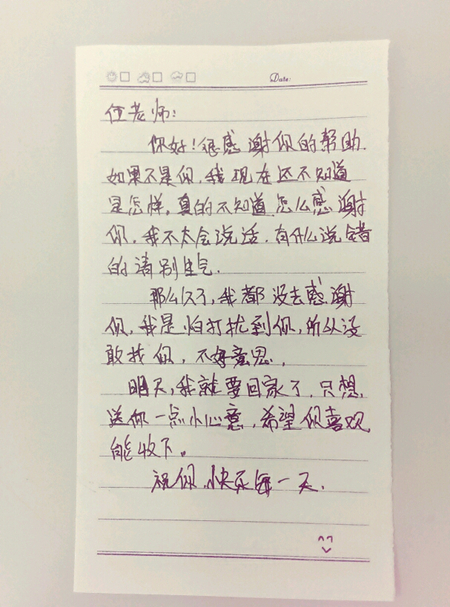 Date:
任老师:
你好!很感谢你的帮助.
如果不是你,我现在还不知道
是怎样,真的不知道怎么感谢
你,我不太会说话,有什么说错
的请别生气.
那么久了,我都没去感谢
你,我是怕打扰到你,所以没
敢找你,不好意思,
明天,我就要回家了,只想
送你一点小心意,希望你喜欢
能收下。
祝你,快乐每一天.